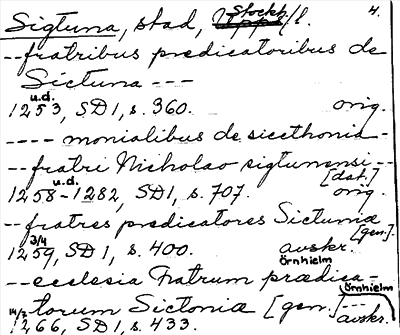 Sigtuna, stad, Uppl. Stockh. l. 4.
--fratribus predicatoribus de
Sictuna ---
u.d.
1253, SD1, s. 360. orig.
---- monialibus de sicethonia-
--fratri Nicholao sigtunensi--
u.d. [dat.]
1258-1282, SD1, s. 707. orig.
--fratres predicatores Sictuniæ
3/4 [gen.]
1259, SD1, s. 400. avskr.
Örnhielm
--ecclesia Fratrum prædica-
Örnhielm
torum Sictoniæ [gen.]---
1266, SD1, s. 433. avskr.